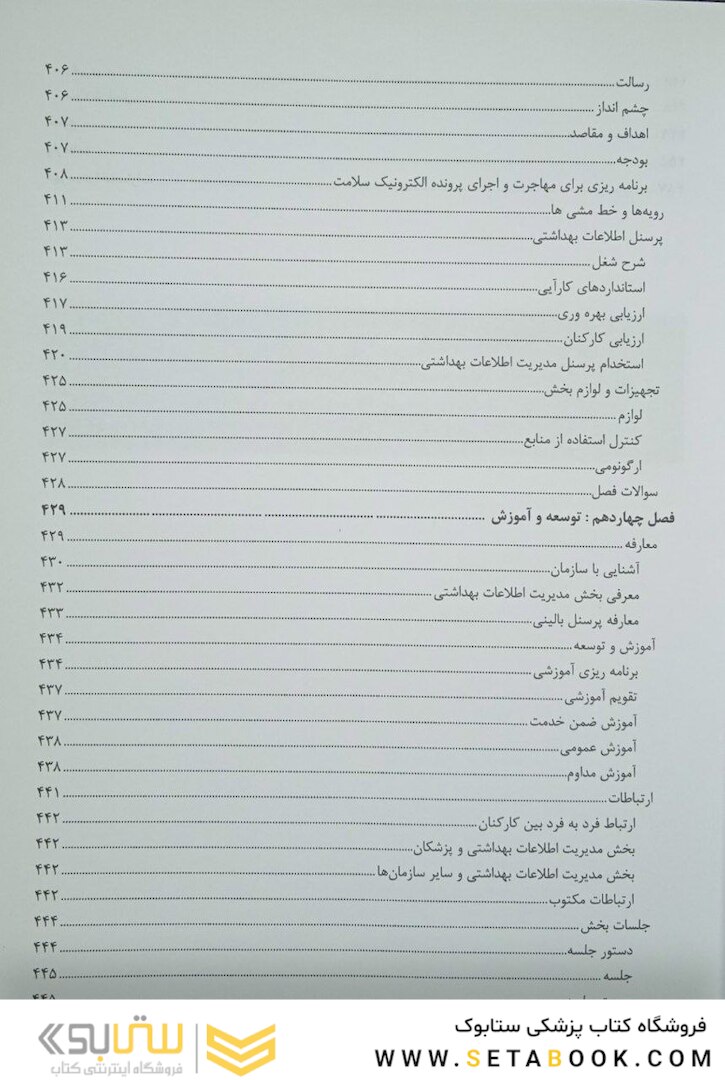 رسالت ........ ۴۰۶
چشم انداز ........ ۴۰۶
اهداف و مقاصد ........ ۴۰۷
بودجه ........ ۴۰۷
برنامه ریزی برای مهاجرت و اجرای پرونده الکترونیک سلامت ........ ۴۰۸
رویه‌ها و خط مشی ها ........ ۴۱۱
پرسنل اطلاعات بهداشتی ........ ۴۱۳
شرح شغل ........ ۴۱۳
استانداردهای کارآیی ........ ۴۱۶
ارزیابی بهره وری ........ ۴۱۷
ارزیابی کارکنان ........ ۴۱۹
استخدام پرسنل مدیریت اطلاعات بهداشتی ........ ۴۲۰
تجهیزات و لوازم بخش ........ ۴۲۵
لوازم ........ ۴۲۵
کنترل استفاده از منابع ........ ۴۲۷
ارگونومی ........ ۴۲۷
سوالات فصل ........ ۴۲۸
فصل چهاردهم : توسعه و آموزش ........ ۴۲۹
معارفه ........ ۴۲۹
آشنایی با سازمان ........ ۴۳۰
معرفی بخش مدیریت اطلاعات بهداشتی ........ ۴۳۲
معارفه پرسنل بالینی ........ ۴۳۳
آموزش و توسعه ........ ۴۳۴
برنامه ریزی آموزشی ........ ۴۳۴
تقویم آموزشی ........ ۴۳۷
آموزش ضمن خدمت ........ ۴۳۷
آموزش عمومی ........ ۴۳۸
آموزش مداوم ........ ۴۳۸
ارتباطات ........ ۴۴۱
ارتباط فرد به فرد بین کارکنان ........ ۴۴۲
بخش مدیریت اطلاعات بهداشتی و پزشکان ........ ۴۴۲
بخش مدیریت اطلاعات بهداشتی و سایر سازمان‌ها ........ ۴۴۲
ارتباطات مکتوب ........ ۴۴۲
جلسات بخش ........ ۴۴۴
دستور جلسه ........ ۴۴۴
جلسه ........ ۴۴۵
فروشگاه کتاب پزشکی ستابوک
WWW.SETABOOK.COM
ستابوک
فروشگاه اینترنتی کتاب